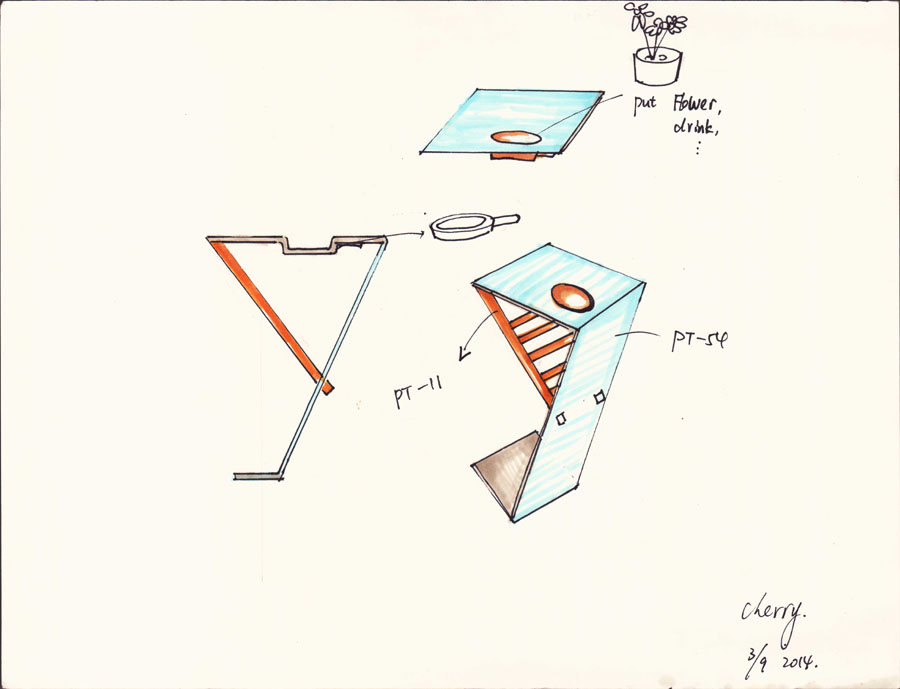 put Flower,
drink,
⋮
PT-54
PT-11
cherry.
3/9 2014.